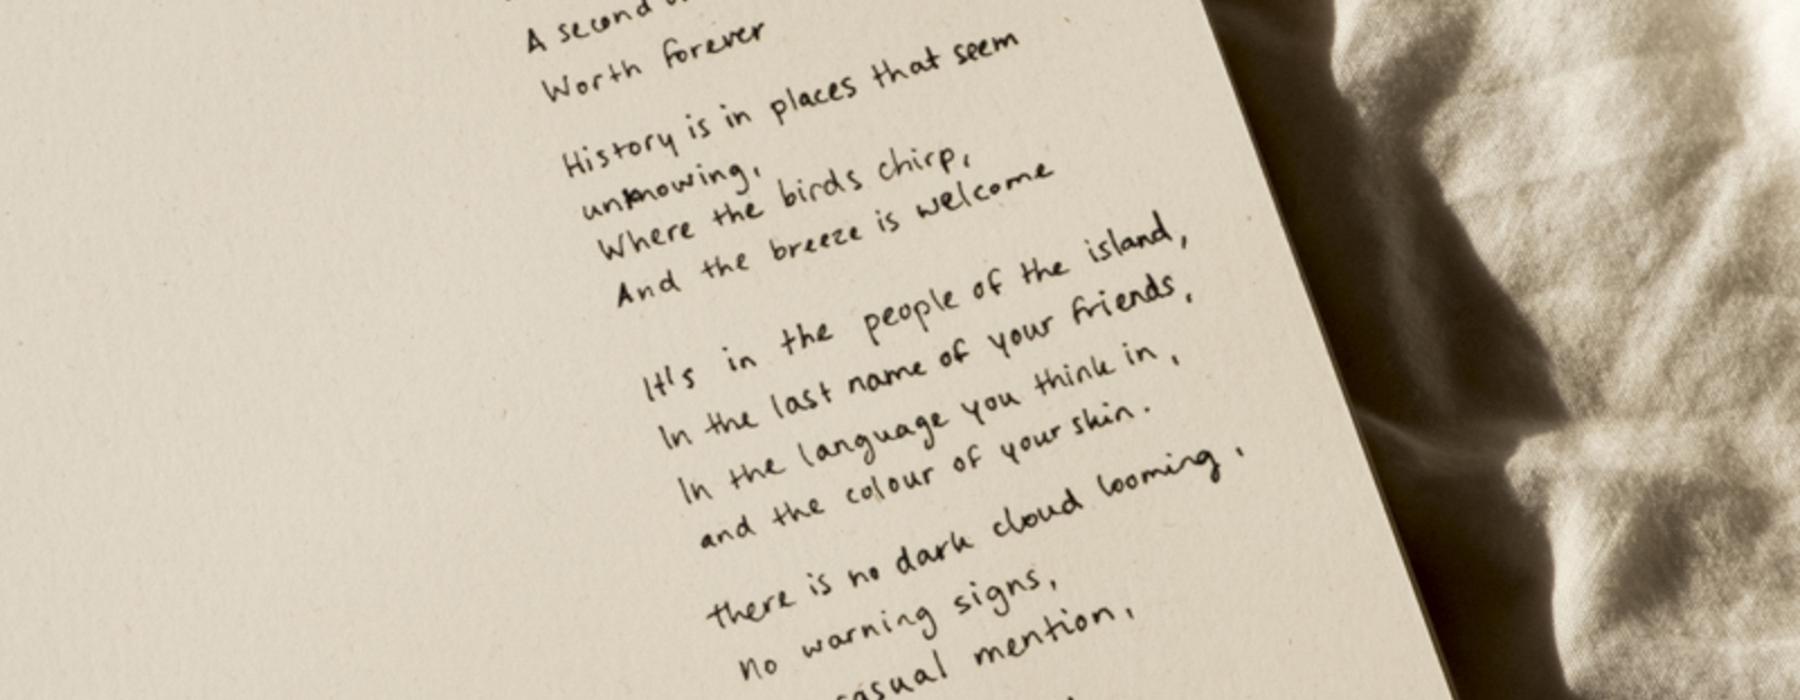 A second
Worth forever
History is in places that seem
unknowing,
Where the birds chirp,
And the breeze is welcome
It's in the people of the island,
In the last name of your friends,
In the language you think in,
and the colour of your skin.
there is no dark cloud looming,
No warning signs,
casual mention,